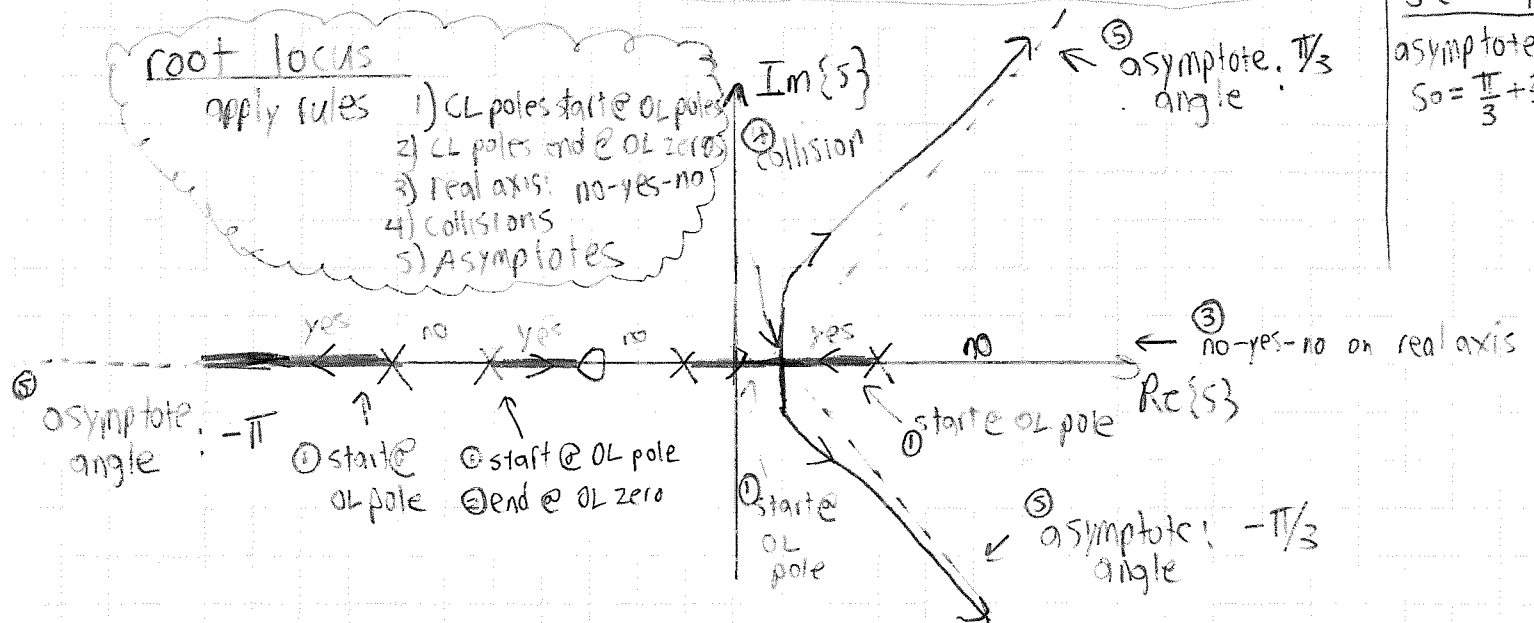 root locus
apply rules
1) CL poles start @ OL poles
2) CL poles end @ OL zeros
3) real axis: no-yes-no
4) Collisions
5) Asymptotes
Im{s}
④ collision
⑤ asymptote: π/3
angle
asymptote
so = π/3 +
yes
no
yes
no
yes
no
← ③ no-yes-no on real axis
Re{s}
⑤ asymptote: -π
angle
① start @
OL pole
① start @ OL pole
② end @ OL zero
① start @
OL
pole
① start @ OL pole
⑤ asymptote: -π/3
angle